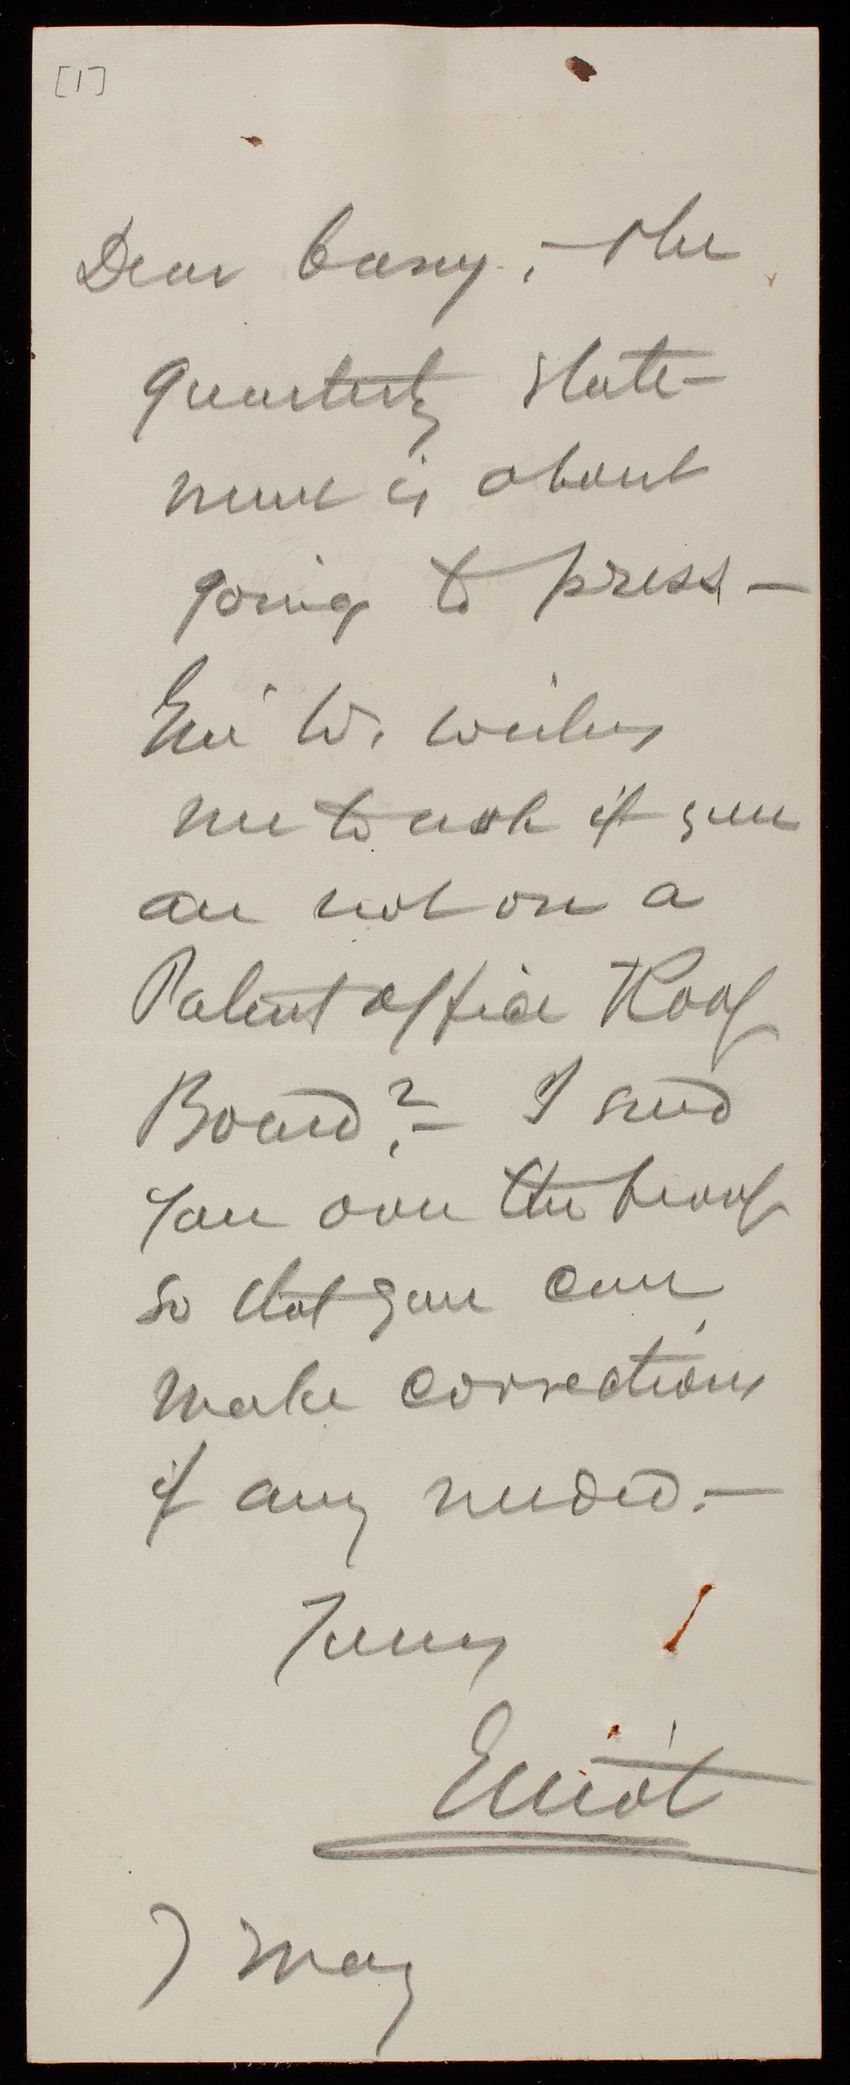 [1]
Dear Casey, - the
quarterly state-
ment is about
going to press -
Genl W. wishes
me to ask if you
are not on a
Patent office Roof
Board? - I send
you over the proof
so that you can
make corrections
if any needed. -
Yours
Elliot
7 May